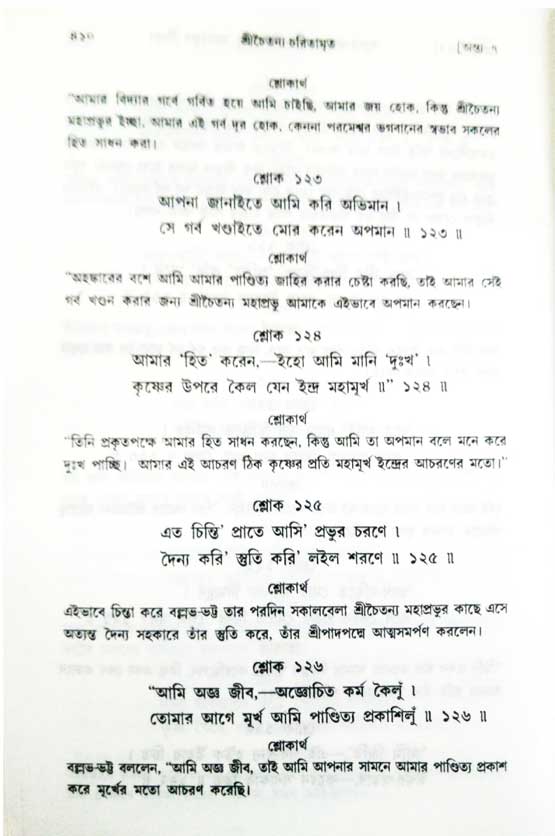 ৪১০ শ্রীচৈতন্য চরিতামৃত [অন্ত্য-৭
শ্লোকার্থ
"আমার বিদ্যার গর্বে গর্বিত হয়ে আমি চাইছি, আমার জয় হোক, কিন্তু শ্রীচৈতন্য
মহাপ্রভুর ইচ্ছা, আমার এই গর্ব দূর হোক, কেননা পরমেশ্বর ভগবানের স্বভাব সকলের
হিত সাধন করা।
শ্লোক ১২৩
আপনা জানাইতে আমি করি অভিমান ।
সে গর্ব খণ্ডাইতে মোর করেন অপমান ॥ ১২৩ ॥
শ্লোকার্থ
"অহঙ্কারের বশে আমি আমার পাণ্ডিত্য জাহির করার চেষ্টা করছি, তাই আমার সেই
গর্ব খণ্ডন করার জন্য শ্রীচৈতন্য মহাপ্রভু আমাকে এইভাবে অপমান করছেন।
শ্লোক ১২৪
আমার 'হিত' করেন,—ইহো আমি মানি 'দুঃখ' ।
কৃষ্ণের উপরে কৈল যেন ইন্দ্র মহামূর্খ ॥" ১২৪ ॥
শ্লোকার্থ
"তিনি প্রকৃতপক্ষে আমার হিত সাধন করছেন, কিন্তু আমি তা অপমান বলে মনে করে
দুঃখ পাচ্ছি। আমার এই আচরণ ঠিক কৃষ্ণের প্রতি মহামূর্খ ইন্দ্রের আচরণের মতো।"
শ্লোক ১২৫
এত চিন্তি' প্রাতে আসি' প্রভুর চরণে ।
দৈন্য করি' স্তুতি করি' লইল শরণে ॥ ১২৫ ॥
শ্লোকার্থ
এইভাবে চিন্তা করে বল্লভ-ভট্ট তার পরদিন সকালবেলা শ্রীচৈতন্য মহাপ্রভুর কাছে এসে
অত্যন্ত দৈন্য সহকারে তাঁর স্তুতি করে, তাঁর শ্রীপাদপদ্মে আত্মসমর্পণ করলেন।
শ্লোক ১২৬
"আমি অজ্ঞ জীব,—অজ্ঞোচিত কর্ম কৈলুঁ ।
তোমার আগে মূর্খ আমি পাণ্ডিত্য প্রকাশিলুঁ ॥ ১২৬ ॥
শ্লোকার্থ
বল্লভ-ভট্ট বললেন, "আমি অজ্ঞ জীব, তাই আমি আপনার সামনে আমার পাণ্ডিত্য প্রকাশ
করে মূর্খের মতো আচরণ করেছি।